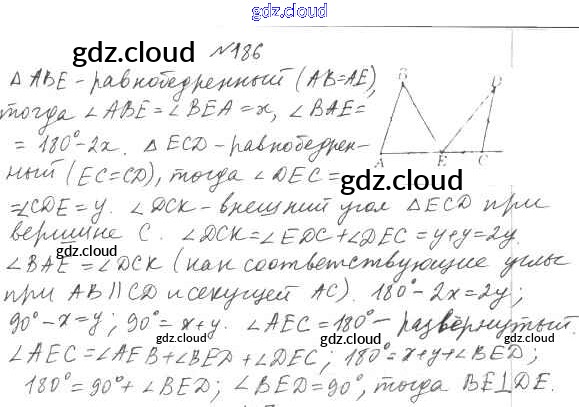 gdz.cloud
gdz.cloud
№186
△ABE - равнобедренный (AB=AE),
тогда ∠ABE=∠BEA=x, ∠BAE=
=180°-2x. △ECD-равнобедрен-
B
D
A
E
C
ный (EC=CD), тогда ∠DEC=
gdz.cloud
gdz.cloud
=∠CDE=y. ∠DCK-внешний угол △ECD при
вершине C. ∠DCK=∠EDC+∠DEC=y+y=2y.
gdz.cloud
∠BAE=∠DCK (как соответствующие углы
при AB∥CD и секущей AC). 180°-2x=2y;
gdz.cloud
90°-x=y; 90°=x+y. ∠AEC=180°-развёрнутый.
gdz.cloud
∠AEC=∠AEB+∠BED+∠DEC; 180°=x+y+∠BED;
180°=90°+∠BED; ∠BED=90°, тогда BE⊥DE.
gdz.cloud